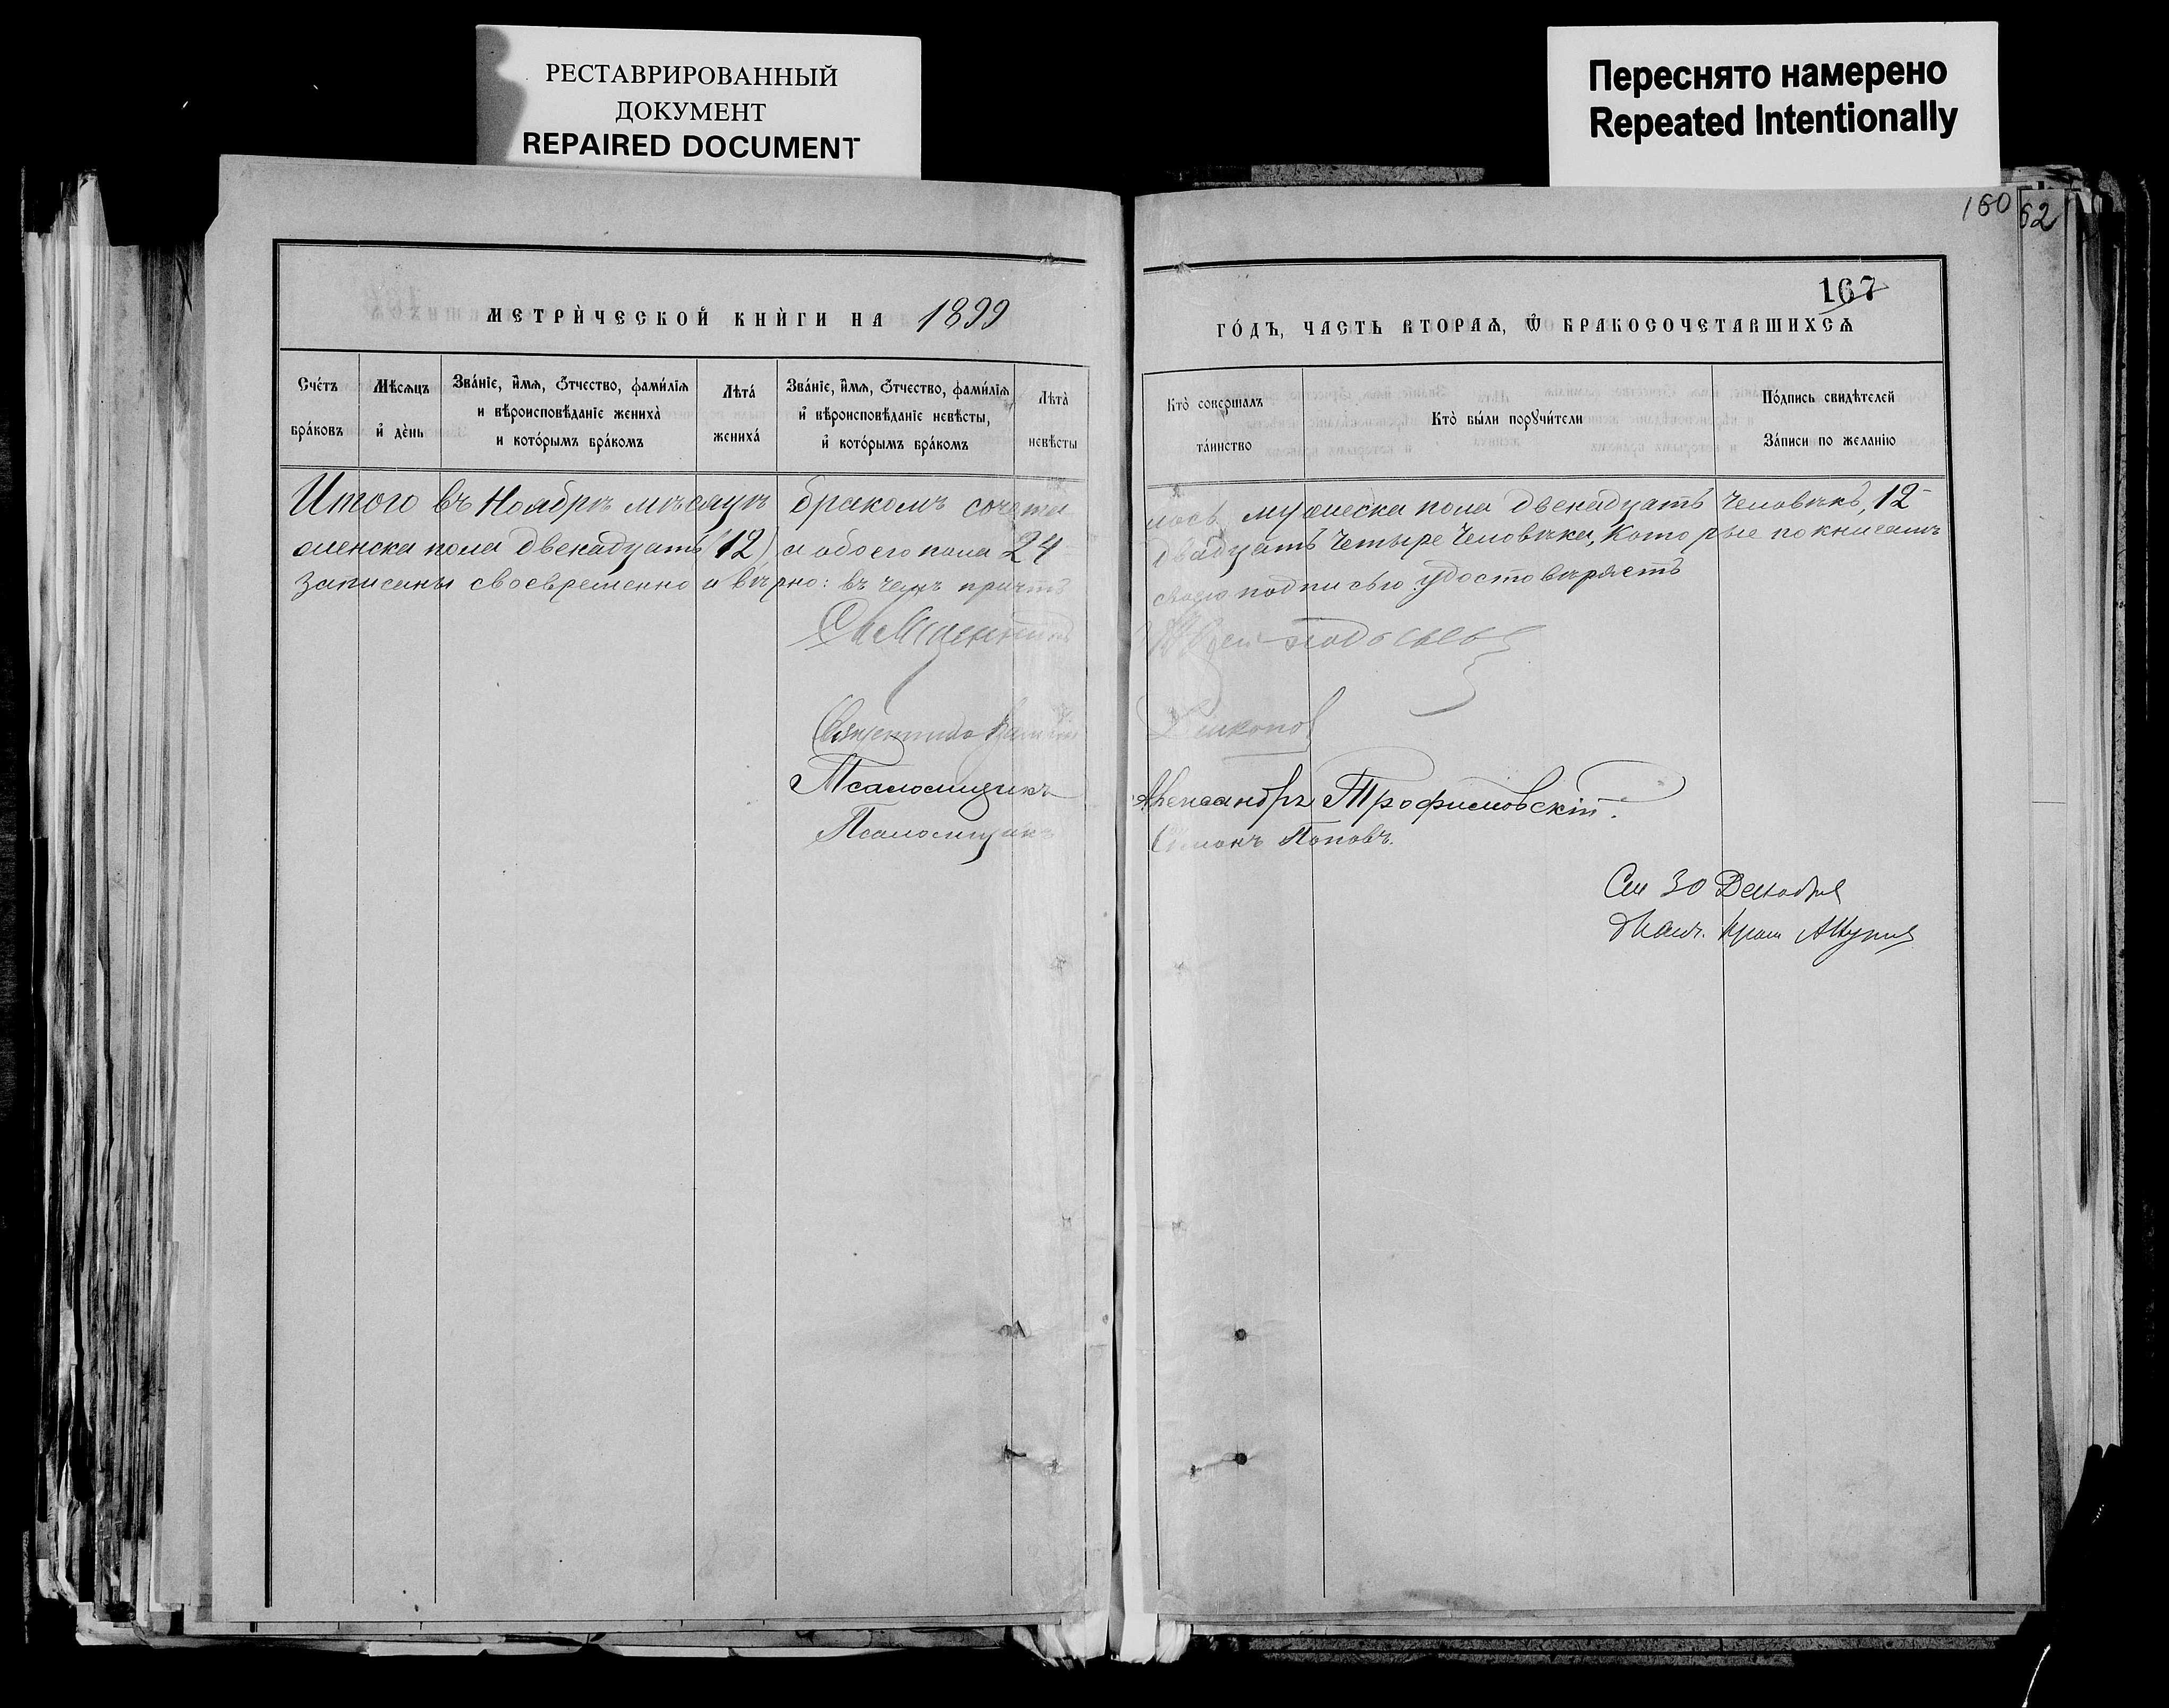 РЕСТАВРИРОВАННЫЙ
ДОКУМЕНТ
REPAIRED DOCUMENT
Переснято намерено
Repeated Intentionally
160
62
МЕТРИ́ЧЕСКОЙ КНИ́ГИ НА 1899
167
ГО́ДЪ, ЧАСТЬ ВТОРАѦ, Ѿ БРАКОСОЧЕТАВШИХСѦ
Сче́тъ
бра́ковъ
Мѣсѧцъ
и́ де́нь
Зва́нїе, и́мѧ, ѻ́тчество, фами́лїѧ
и вѣроисповѣданїе жениха̀
и кото́рымъ бра́комъ
Лѣта́
жениха́
Зва́нїе, и́мѧ, ѻ́тчество, фами́лїѧ
и́ вѣроисповѣданїе невѣсты,
и́ кото́рымъ бра́комъ
Лѣта̀
невѣсты
Кто̀ совершалъ
та́инство
Кто̀ бы́ли порꙋчи́тели
По́дпись свидѣтелей
За́писи по жела́нїю
Итого въ Ноябрѣ мѣсяцѣ бракомъ сочета
лось мужеска пола двенадцать человѣкъ, 12
женска пола двенадцать (12) а обоего пола 24
двадцать четыре человѣка, которые по книгамъ
записаны своевременно и вѣрно: въ чемъ причтъ
своею подписью удостовѣряетъ
Священникъ
Псаломщикъ Александръ Трофимовскій.
Псаломщикъ Симонъ Поповъ.
См 30 Декабря